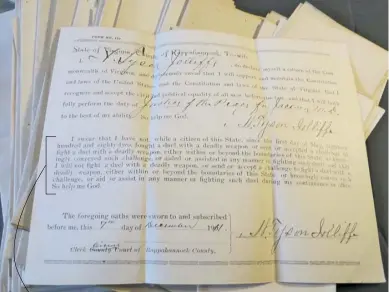 State of Virginia, County of Rappahannock, To-wit:
I, M. Tyson Jolliffe, do declare myself a citizen of the Com-
monwealth of Virginia, and do solemnly swear that I will support and maintain the Constitution
and laws of the United States, and the Constitution and laws of the State of Virginia; that I
recognize and accept the civil and political equality of all men before the law, and that I will
fully perform the duty of Justice of the Peace for
to the best of my ability. So help me God.
M. Tyson Jolliffe
I swear that I have not, while a citizen of this State, since the first day of May, eighteen
hundred and eighty-two, fought a duel with a deadly weapon, or sent or accepted a challenge to
fight a duel with a deadly weapon, either within or beyond the boundaries of this State, or know-
ingly conveyed such challenge, or aided or assisted in any manner in fighting such duel, and that
I will not fight a duel with a deadly weapon, or send or accept a challenge to fight a duel with a
deadly weapon, either within or beyond the boundaries of this State, or knowingly convey such
challenge, or aid or assist in any manner in fighting such duel during my continuance in office.
So help me God.
The foregoing oaths were sworn to and subscribed
before me, this day of December
M. Tyson Jolliffe
Clerk Circuit County Court of Rappahannock County.